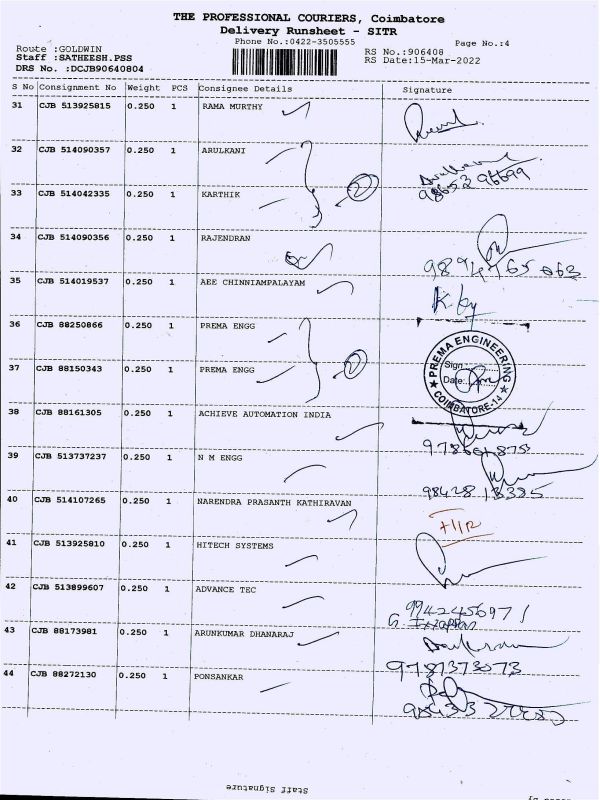 THE PROFESSIONAL COURIERS, Coimbatore
Delivery Runsheet - SITR
Phone No.:0422-3505555
Page No.:4
Route :GOLDWIN
Staff :SATHEESH.PSS
DRS No. :DCJB90640804
RS No.:906408
RS Date:15-Mar-2022
S No Consignment No Weight PCS Consignee Details Signature
31 CJB 513925815 0.250 1 RAMA MURTHY
32 CJB 514090357 0.250 1 ARULKANI
33 CJB 514042335 0.250 1 KARTHIK
2
34 CJB 514090356 0.250 1 RAJENDRAN
35 CJB 514019537 0.250 1 AEE CHINNIAMPALAYAM
36 CJB 88250866 0.250 1 PREMA ENGG
PREMA ENGINEERING
Sign
Date
COIMBATORE-14
37 CJB 88150343 0.250 1 PREMA ENGG
2
38 CJB 88161305 0.250 1 ACHIEVE AUTOMATION INDIA
39 CJB 513737237 0.250 1 N M ENGG
40 CJB 514107265 0.250 1 NARENDRA PRASANTH KATHIRAVAN
41 CJB 513925810 0.250 1 HITECH SYSTEMS
42 CJB 513899607 0.250 1 ADVANCE TEC
9942456971
43 CJB 88173981 0.250 1 ARUNKUMAR DHANARAJ
9787373073
44 CJB 88272130 0.250 1 PONSANKAR
Staff Signature